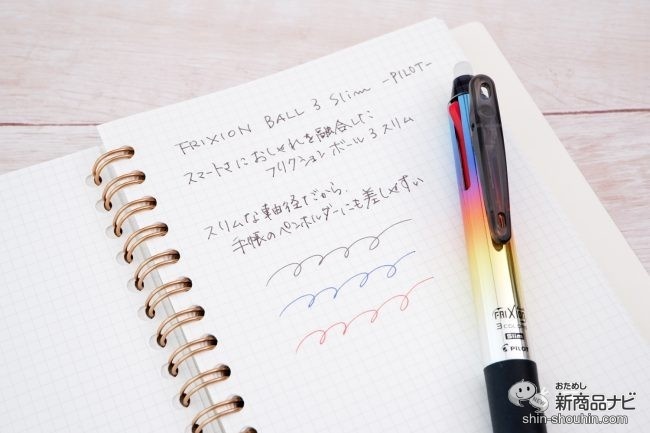 FRIXION BALL 3 Slim -PILOT-
スマートさにおしゃれを融合した
フリクションボール3スリム
スリムな軸径だから、
手帳のペンホルダーにも差しやすい
FRIXION
3 COLOR
Slim
PILOT
おためし
新商品ナビ
shin-shouhin.com
NEW